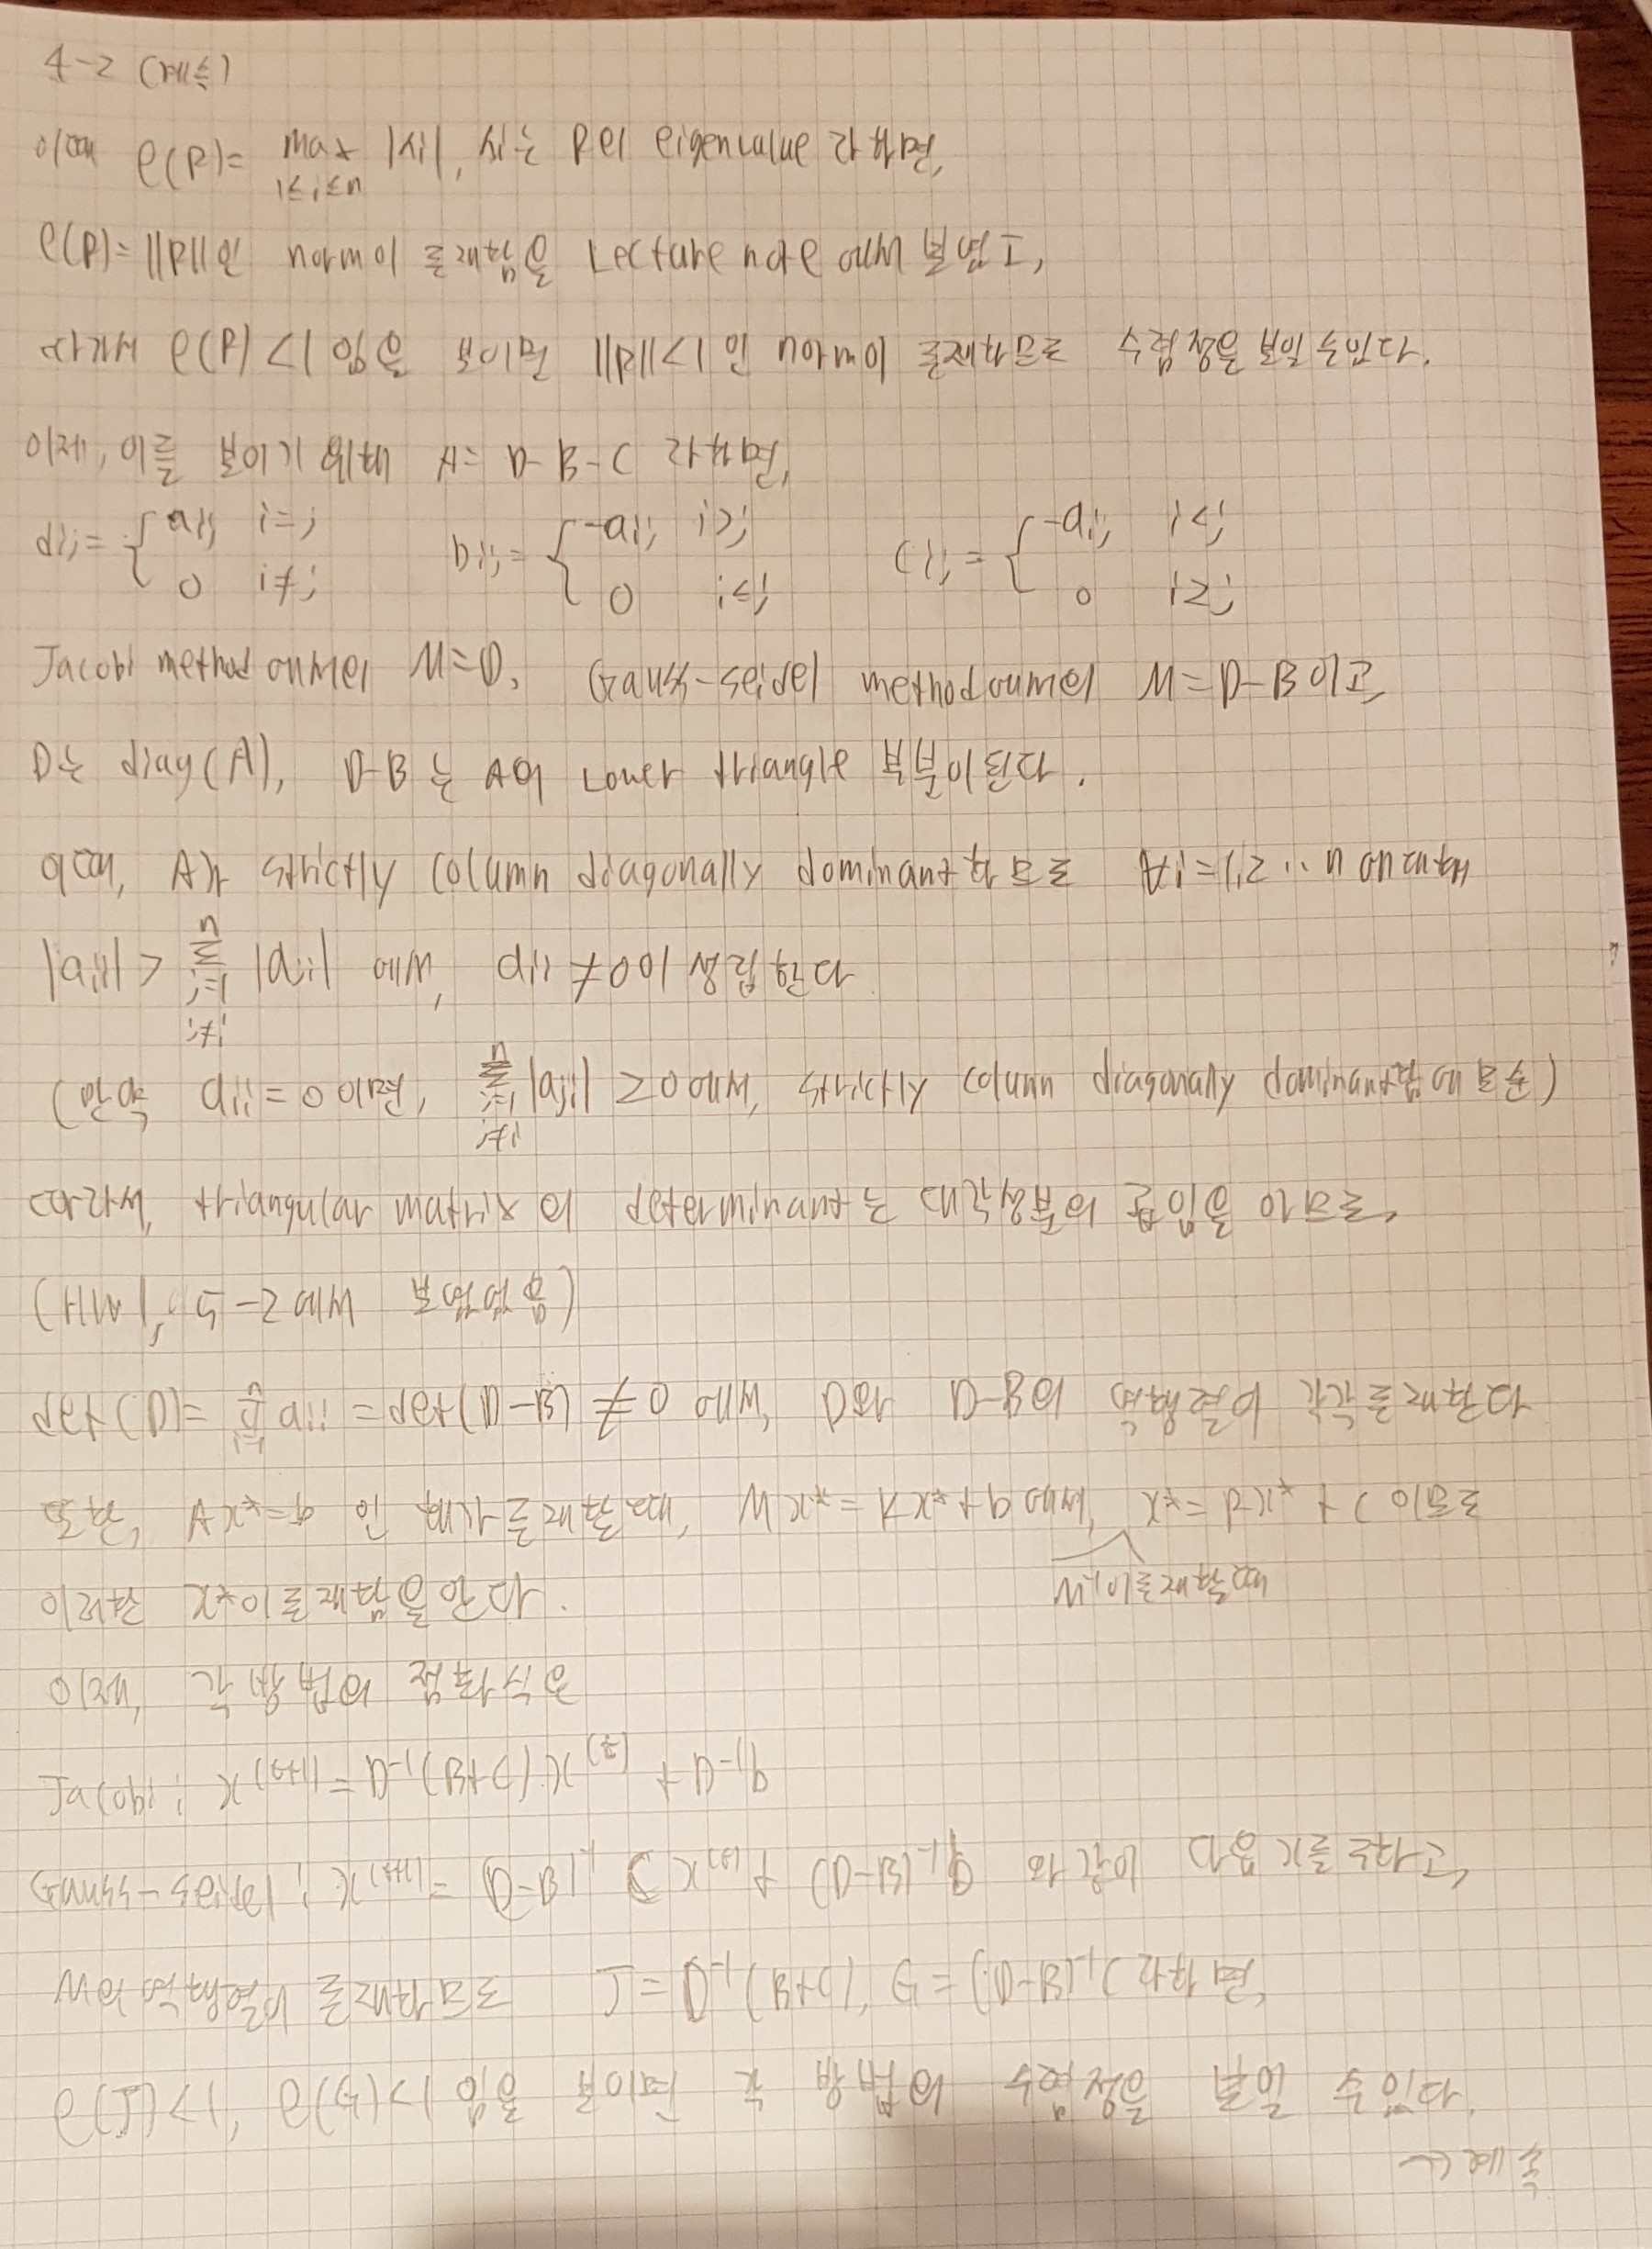 4-2 (계속)
이때 ρ(P)= max |λi|, λi는 P의 eigenvalue 라 하면,
1≤i≤n
ρ(P)=||P||인 norm이 존재함을 Lecture note에서 보였고,
따라서 ρ(P)<1 임을 보이면 ||P||<1 인 norm이 존재하므로 수렴성을 보일 수 있다.
이제, 이를 보이기 위해 A= D-B-C 라 하면,
dij = { aij i=j bij = { -aij i>j cij = { -aij i<j
0 i≠j 0 i≤j 0 i≥j
Jacobi method에서의 M=D, Gauss-Seidel method에서의 M=D-B 이고
D는 diag(A), D-B는 A의 Lower triangle 부분이 된다.
이때, A가 strictly column diagonally dominant하므로 ∀i=1,2,…n에 대해
|aii| > Σ |aji| 에서, aii ≠0이 성립한다
(만약 aii=0이면, Σ|aji| ≥0에서, strictly column diagonally dominant함에 모순)
따라서, triangular matrix의 determinant는 대각성분의 곱임을 이용하면,
(HW1, 5-2에서 보였었음)
det(D)= Π aii = det(D-B) ≠ 0 에서, D와 D-B의 역행렬이 각각 존재한다
또한, Ax*=b 인 해가 존재할 때, Mx*=Kx*+b 에서, x*=Px*+C 이므로
M⁻¹이 존재할 때
이러한 x*이 존재함을 안다.
이제, 각 방법의 점화식은
Jacobi : x⁽ᵏ⁺¹⁾ = D⁻¹(B+C)x⁽ᵏ⁾ + D⁻¹b
Gauss-Seidel : x⁽ᵏ⁺¹⁾ = (D-B)⁻¹Cx⁽ᵏ⁾ + (D-B)⁻¹b 와 같이 다음 x를 구하고,
M의 역행렬이 존재하므로 J=D⁻¹(B+C), G=(D-B)⁻¹C라 하면,
ρ(J)<1, ρ(G)<1 임을 보이면 각 방법의 수렴성을 보일 수 있다.
→계속